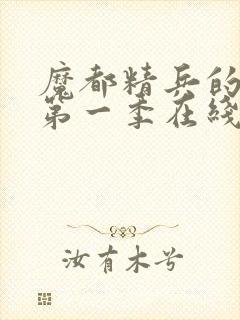 魔都精兵的
第一季在线
汝有木兮